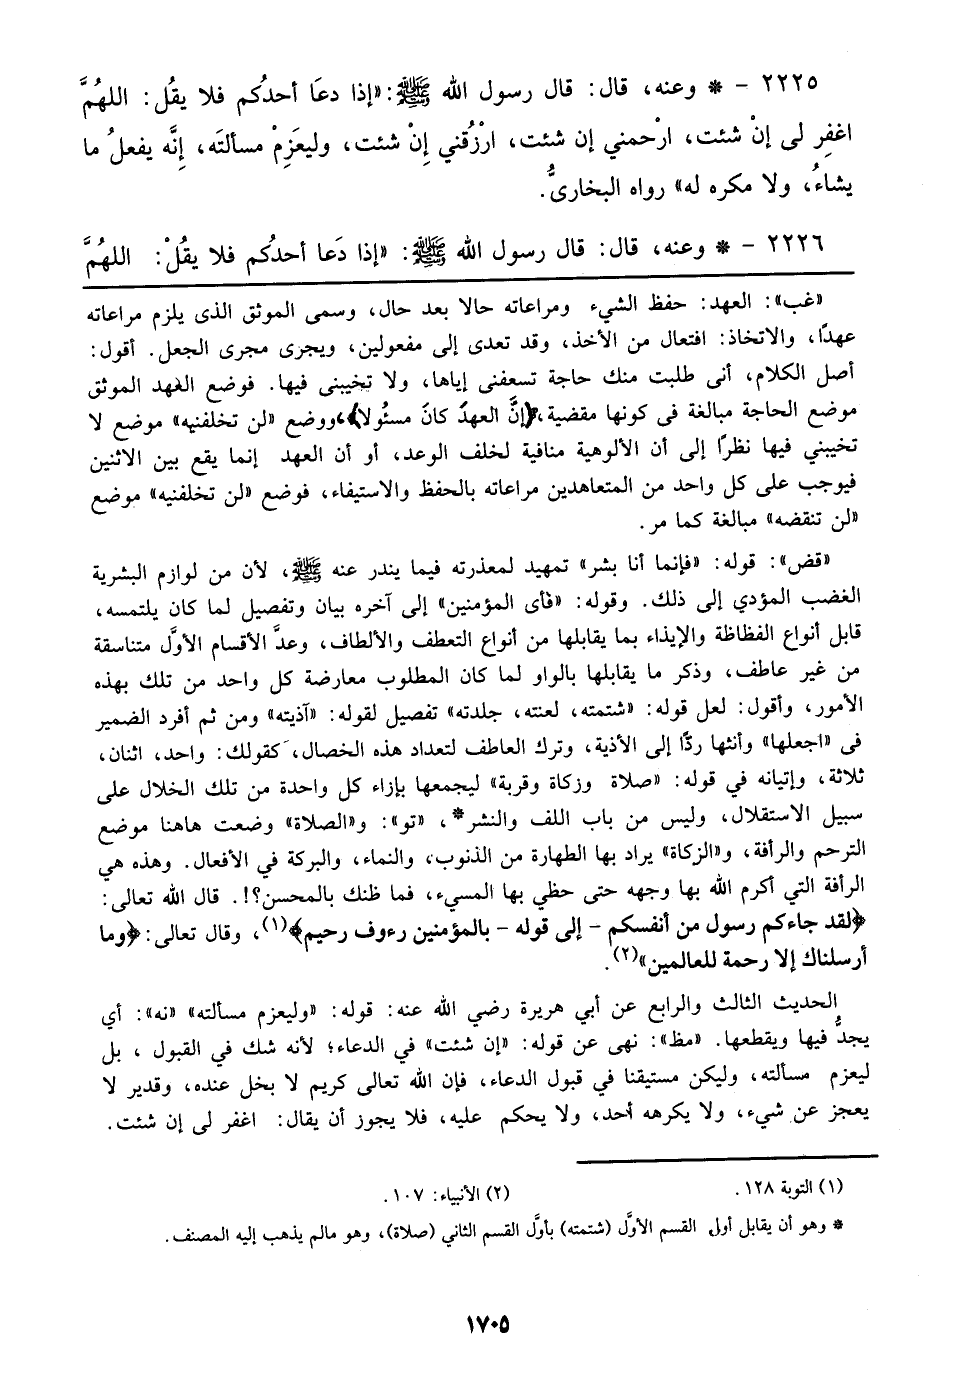 ٢٢٢٥ - * وعنه، قال: قال رسول الله ﷺ: «إذا دعَا أحدُكم فلا يقُل: اللهُمَّ
اغفِر لى إنْ شئت، ارْحمني إن شئت، ارْزُقني إِنْ شئت، وليعَزِمْ مسألتَه، إِنَّه يفعلُ ما
يشاءُ، ولا مكره له» رواه البخارىُّ.
٢٢٢٦ - * وعنه، قال: قال رسول الله ﷺ: «إذا دَعا أحدُكم فلا يقُلْ: اللهُمَّ
«غب»: العهد: حفظ الشيء ومراعاته حالا بعد حال، وسمى الموثق الذى يلزم مراعاته
عهدًا، والاتخاذ: افتعال من الأخذ، وقد تعدى إلى مفعولين، ويجرى مجرى الجعل. أقول:
أصل الكلام، أنى طلبت منك حاجة تسعفنى إياها، ولا تخيبنى فيها. فوضع العهد الموثق
موضع الحاجة مبالغة فى كونها مقضية، ﴿إنَّ العهدَ كانَ مسئُولا﴾، ووضع «لن تخلفنيه» موضع لا
تخيبني فيها نظرًا إلى أن الألوهية منافية لخلف الوعد، أو أن العهد إنما يقع بين الاثنين
فيوجب على كل واحد من المتعاهدين مراعاته بالحفظ والاستيفاء، فوضع «لن تخلفنيه» موضع
«لن تنقضه» مبالغة كما مر.
«قض»: قوله: «فإنما أنا بشر» تمهيد لمعذرته فيما يندر عنه ﷺ، لأن من لوازم البشرية
الغضب المؤدي إلى ذلك. وقوله: «فأى المؤمنين» إلى آخره بيان وتفصيل لما كان يلتمسه،
قابل أنواع الفظاظة والإيذاء بما يقابلها من أنواع التعطف والألطاف، وعدَّ الأقسام الأوَّل متناسقة
من غير عاطف، وذكر ما يقابلها بالواو لما كان المطلوب معارضة كل واحد من تلك بهذه
الأمور، وأقول: لعل قوله: «شتمته، لعنته، جلدته» تفصيل لقوله: «آذيته» ومن ثم أفرد الضمير
فى «اجعلها» وأنثها ردًّا إلى الأذية، وترك العاطف لتعداد هذه الخصال، كقولك: واحد، اثنان،
ثلاثة، وإتيانه في قوله: «صلاة وزكاة وقربة» ليجمعها بإزاء كل واحدة من تلك الخلال على
سبيل الاستقلال، وليس من باب اللف والنشر*، «تو»: و«الصلاة» وضعت هاهنا موضع
الترحم والرأفة، و«الزكاة» يراد بها الطهارة من الذنوب، والنماء، والبركة في الأفعال. وهذه هي
الرأفة التي أكرم الله بها وجهه حتى حظي بها المسيء، فما ظنك بالمحسن؟!. قال الله تعالى:
﴿لقد جاءكم رسول من أنفسكم - إلى قوله - بالمؤمنين رءوف رحيم﴾(١)، وقال تعالى: ﴿وما
أرسلناك إلا رحمة للعالمين»(٢).
الحديث الثالث والرابع عن أبي هريرة رضي الله عنه: قوله: «وليعزم مسألته» «نه»: أي
يجدُّ فيها ويقطعها. «مظ»: نهى عن قوله: «إن شئت» في الدعاء؛ لأنه شك في القبول، بل
ليعزم مسألته، وليكن مستيقنا في قبول الدعاء، فإن الله تعالى كريم لا بخل عنده، وقدير لا
يعجز عن شيء، ولا يكرهه أحد، ولا يحكم عليه، فلا يجوز أن يقال: اغفر لى إن شئت.
(١) التوبة ١٢٨. (٢) الأنبياء: ١٠٧.
* وهو أن يقابل أول القسم الأوَّل (شتمته) بأول القسم الثاني (صلاة)، وهو مالم يذهب إليه المصنف.
١٧٠٥